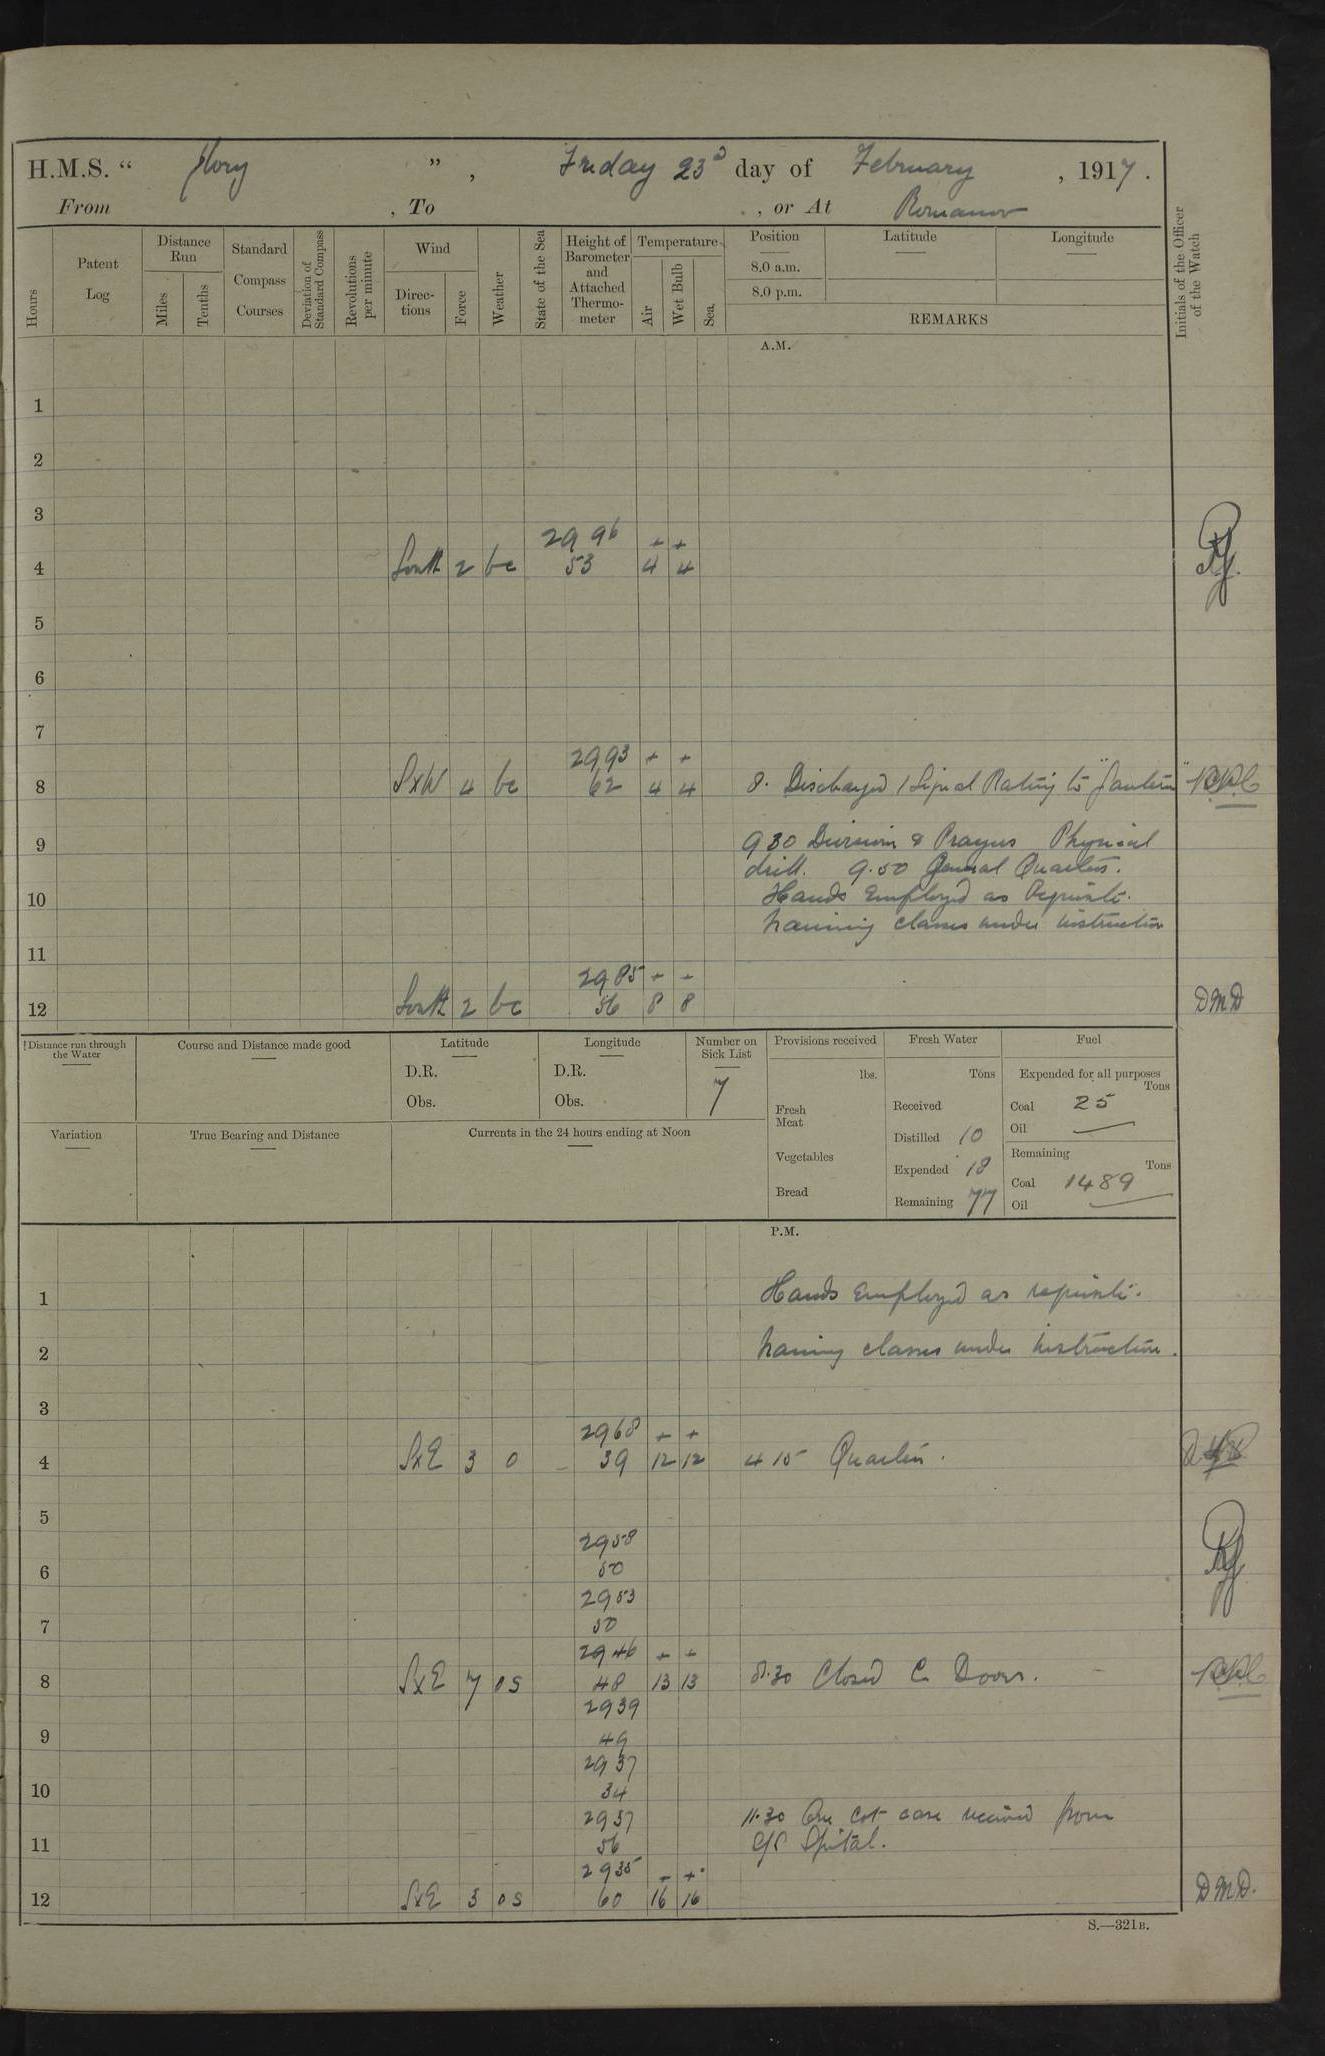 H.M.S. “ Glory ” , Friday 23d day of February , 1917 .
From , To , or At Romanov
Hours
Patent Log
Distance Run
Miles
Tenths
Standard Compass Courses
Deviation of Standard Compass
Revolutions per minute
Wind
Directions
Force
Weather
State of the Sea
Height of Barometer and Attached Thermometer
Temperature
Air
Wet Bulb
Sea
Position
8.0 a.m.
8.0 p.m.
Latitude
Longitude
REMARKS
Initials of the Officer of the Watch
A.M.
1
2
3
29 96 + +
4 South 2 bc 53 4 4
5
6
7
29 93 + +
8 SxW 4 bc 62 4 4 8. Discharged 1 Signal Rating to
9 9 30 Division & Prayers Physical
drill. 9.50 General Quarters.
10 Hands Employed as Requisite.
Training classes under instruction
11
29 85 + +
12 South 2 bc 56 8 8 DMD
Distance run through the Water
Course and Distance made good
Latitude
D.R.
Obs.
Longitude
D.R.
Obs.
Number on Sick List
7
Provisions received
lbs.
Fresh Meat
Vegetables
Bread
Fresh Water
Tons
Received
Distilled 10
Expended 18
Remaining 77
Fuel
Expended for all purposes
Tons
Coal 25
Oil —
Remaining
Tons
Coal 1489
Oil —
Variation
True Bearing and Distance
Currents in the 24 hours ending at Noon
P.M.
1 Hands Employed as requisite.
2 Training classes under instruction.
3
29 68 + +
4 SxE 3 o 39 12 12 4 15 Quarters.
5
29 58
6 50
29 53
7 50
29 46 + +
8 SxE 7 os 48 13 13 8.30 Closed C. Doors.
29 39
9 49
29 37
10 34
29 37 11.30 One cot case received from
11 56
29 35 + +
12 SxE 3 os 60 16 16 DMD.
S.—321B.